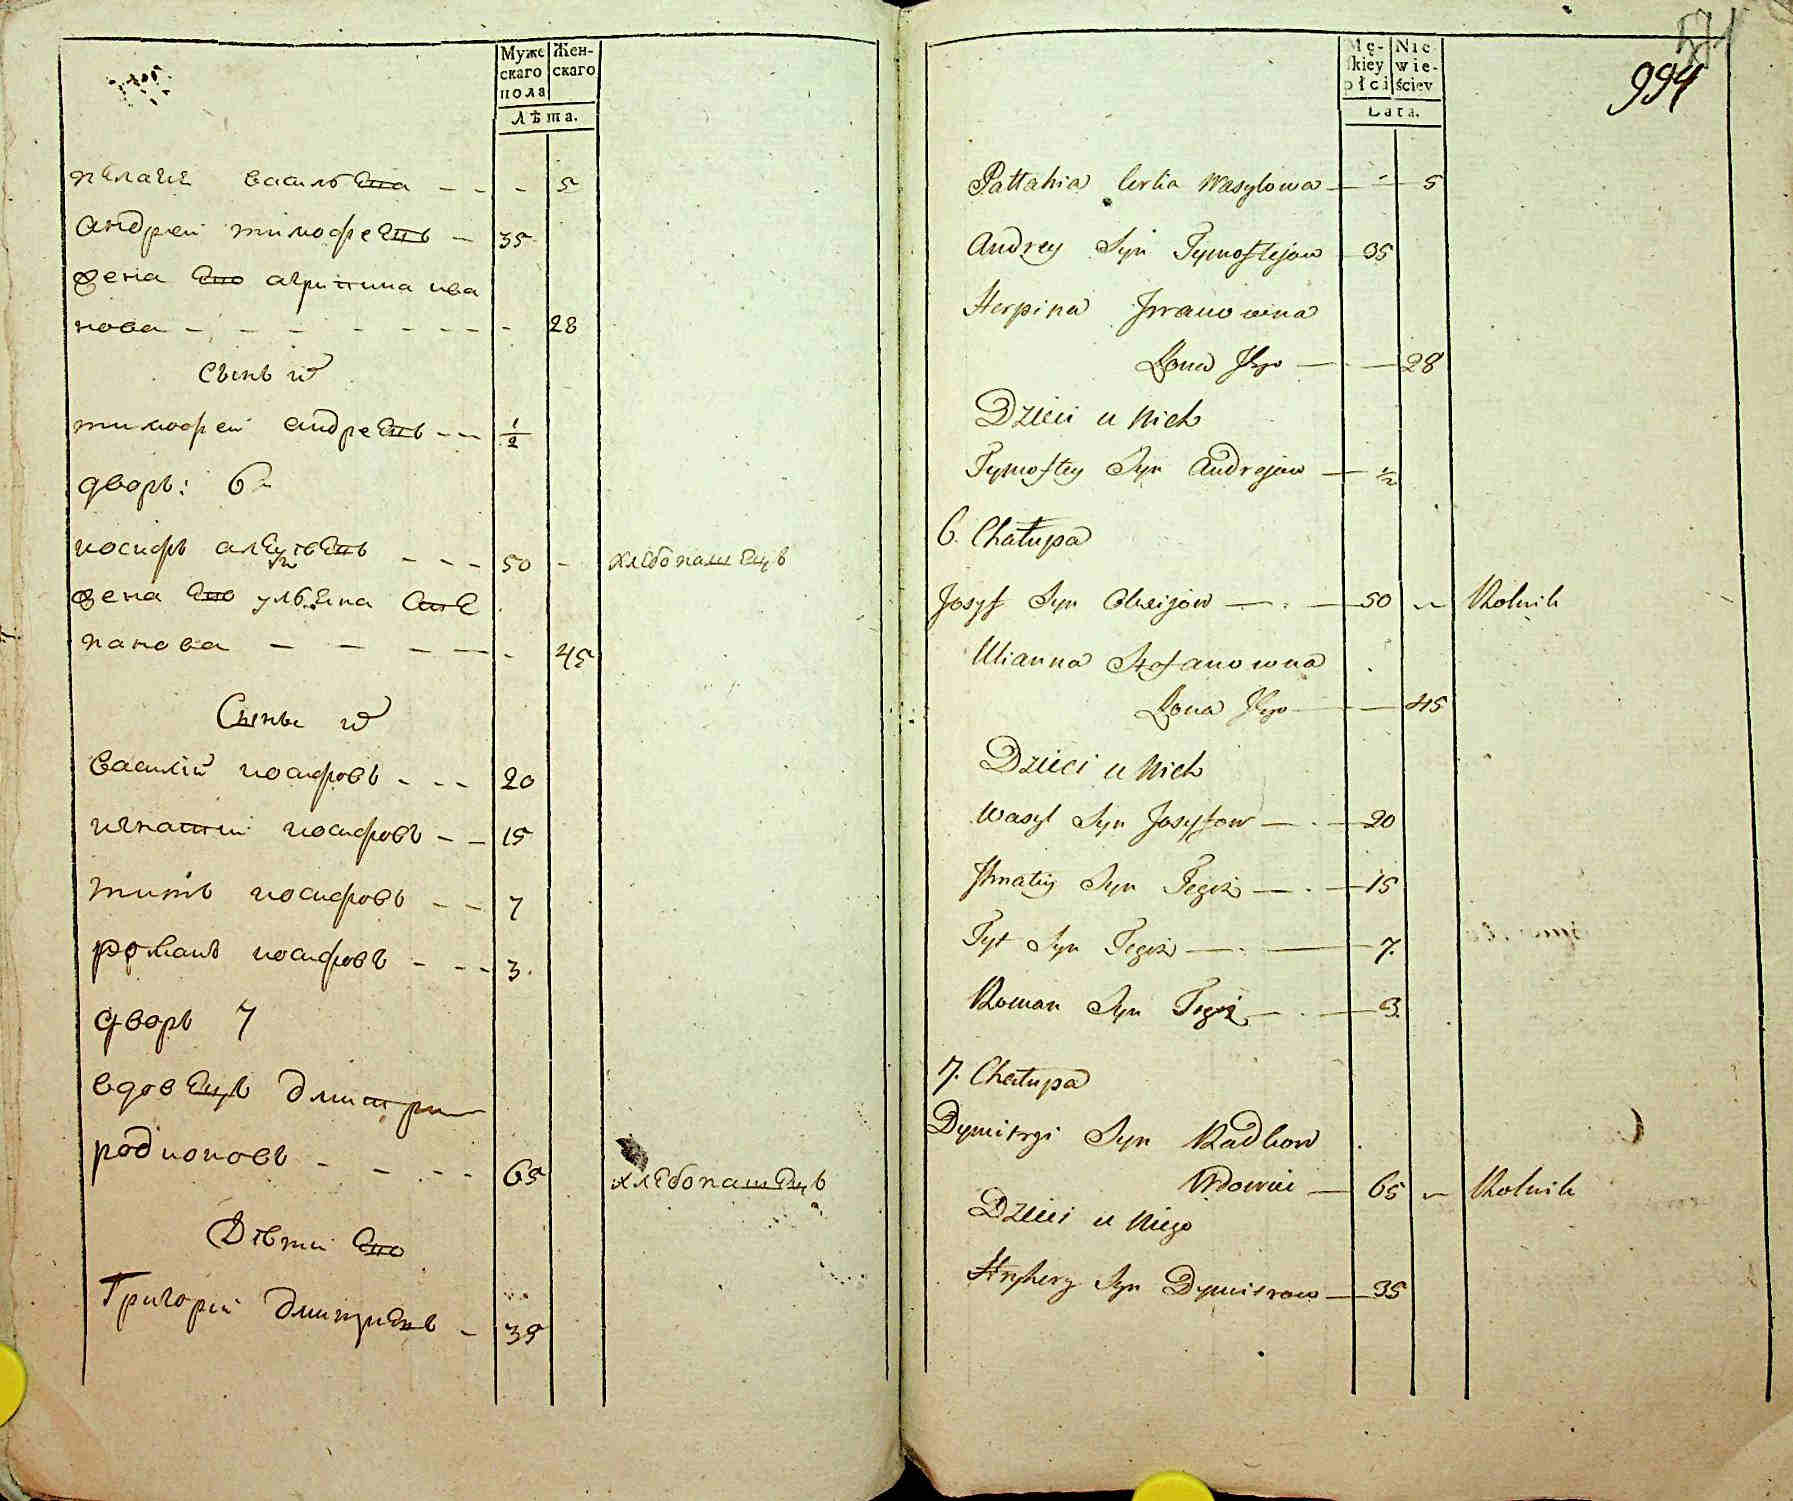 Муже
скаго
пола
Жен-
скаго
Лѣта.
пелагея васильева - - - 5
андрей тимофеевъ - 35
жена его агрипина ива
нова - - - - - - - - 28
Сынъ их
тимофей андреевъ - - 1/2
дворъ: 6
иосифъ алексѣевъ - - - 50 - хлебопашецъ
жена его ульяна сте
панова - - - - - 45
Сыны их
василий иосифовъ - - - 20
игнатий иосифовъ - - 15
титъ иосифовъ - - 7
романъ иосифовъ - - - 3.
дворъ 7
вдовецъ дмитри
родионовъ - - - - 65 хлебопашецъ
Дѣти его
Григорий дмитриевъ - 35
Mę-
skiey
płci
Nie
wie-
ściey
Lata.
571
994
Pałłahia Corka Wasylowa — - — 5
Andrey Syn Tymoftejow — 35
Horpina Iwanowna
Żona Jego — — 28
Dzieci u Nich
Tymoftey Syn Andrejow — 1/2
6. Chałupa
Josyf Syn Olexijow — . — 50 Rolnik
Ulianna Stefanowna
Żona Jego — — 45
Dzieci u Nich
Wasyl Syn Josyfow — . — 20
Ihnatiy Syn Tegoż — . — 15
Tyt Syn Tegoż — . — 7.
Roman Syn Tegoż — . — 3.
7. Chałupa
Dymitrzi Syn Radkow
Wdowiec — 65 Rolnik
Dzieci u Niego
Hryhory Syn Dymitrow — 35